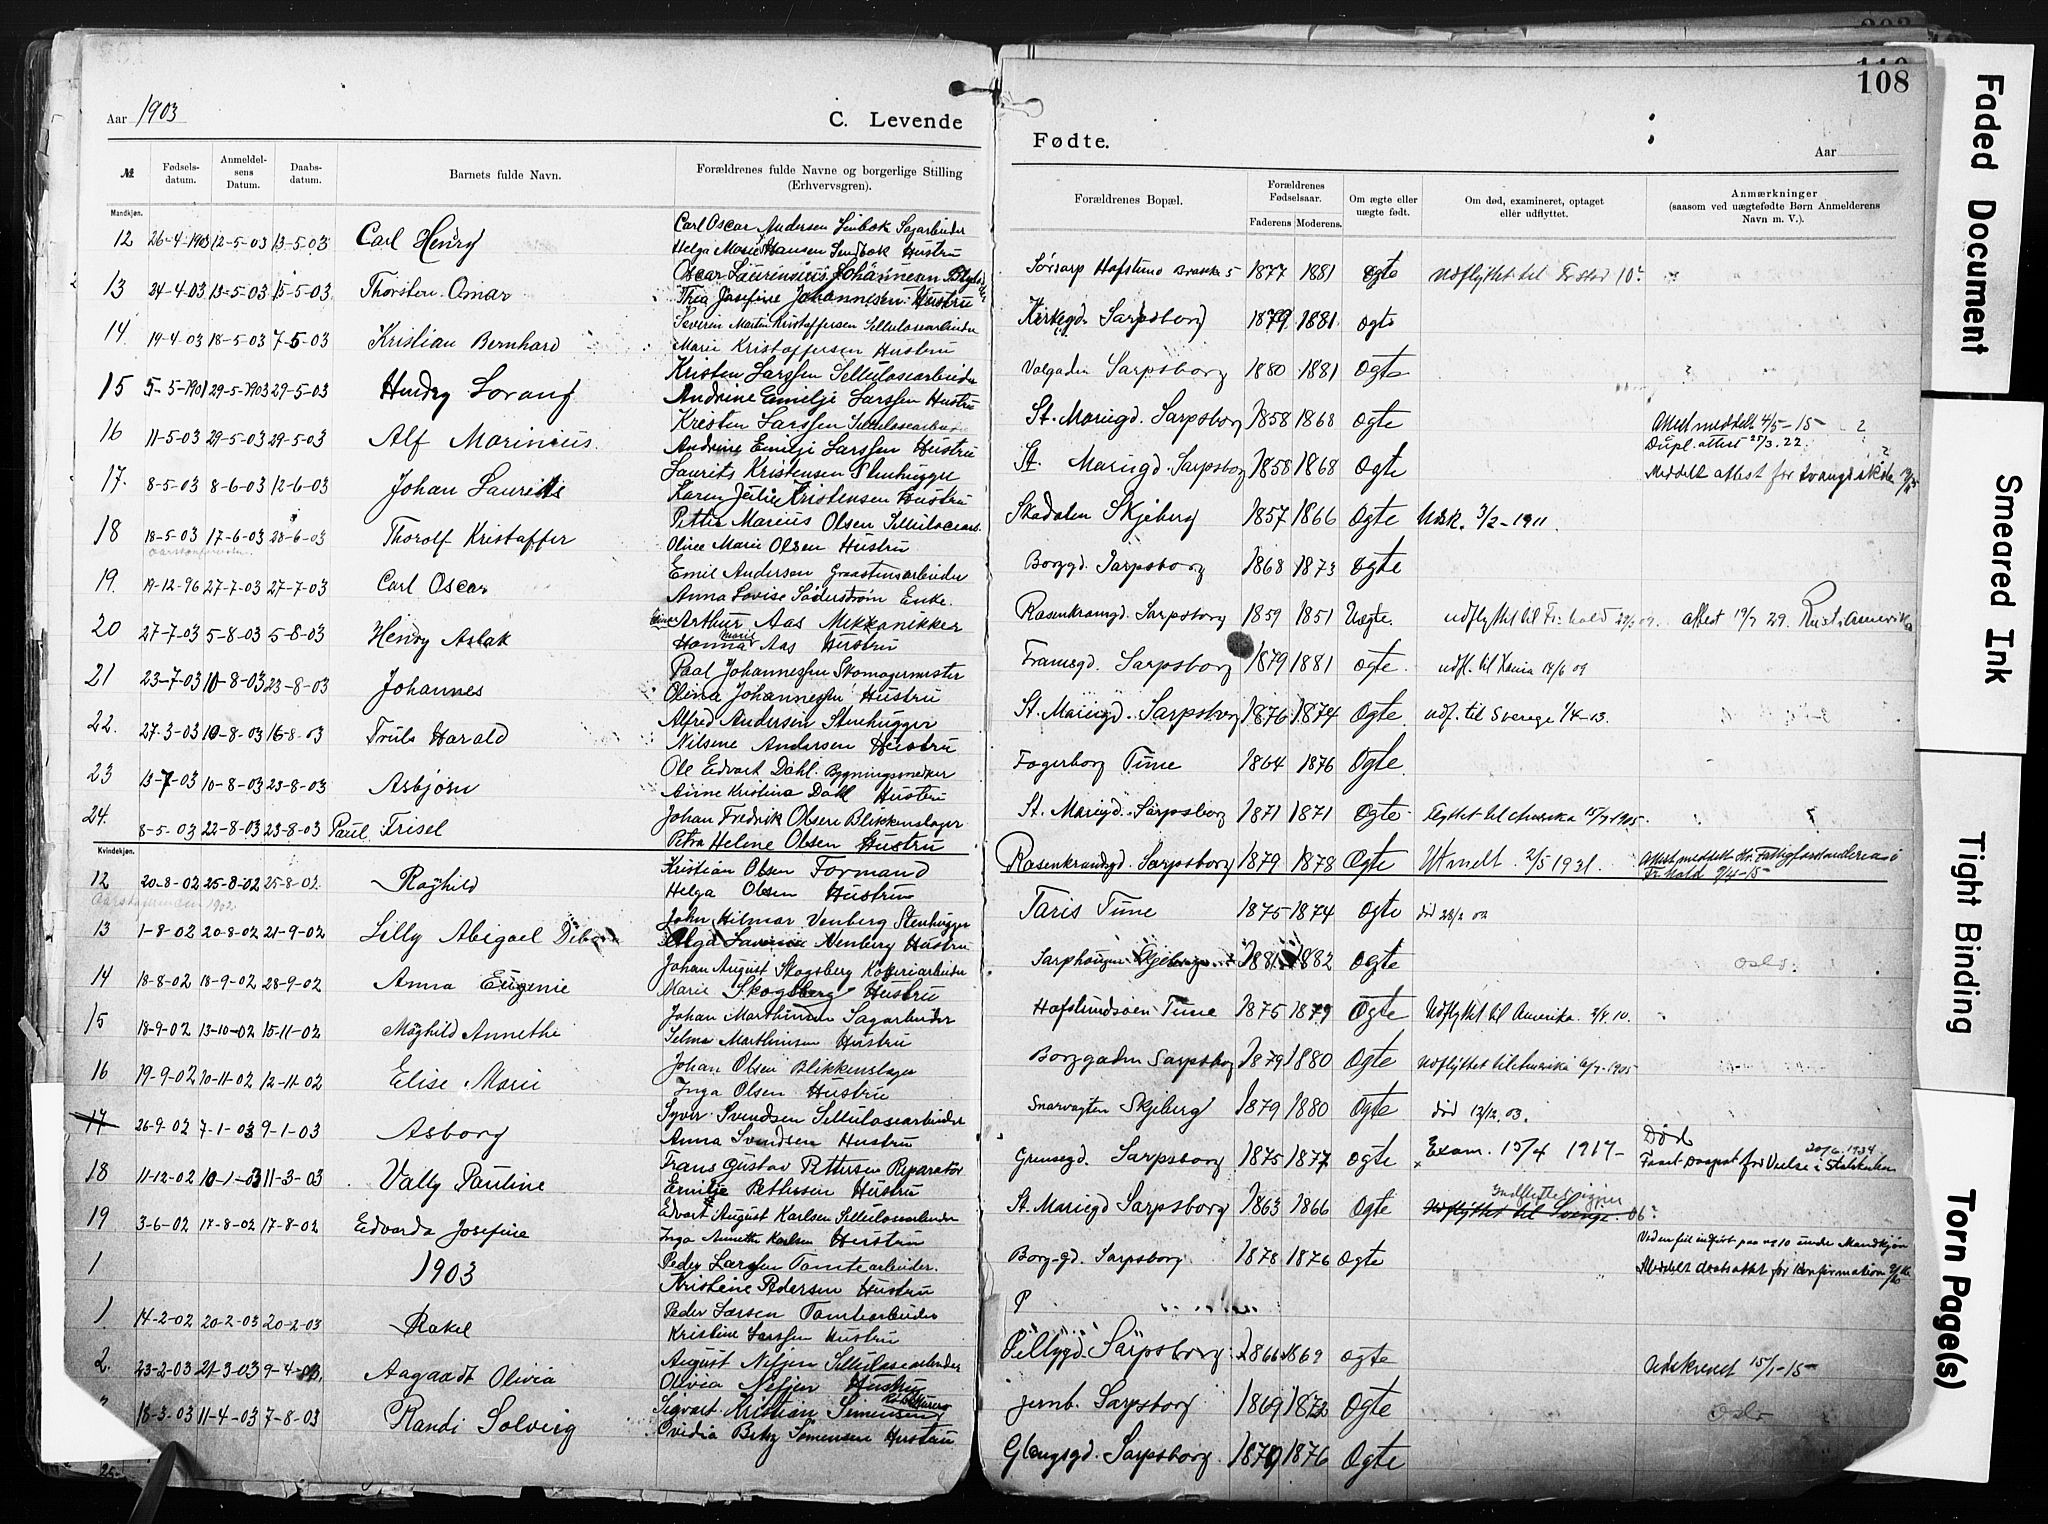 108
Aar 1903
C. Levende
Fødte.
Aar
№ Fødselsdatum. Anmeldelsens Datum. Daabsdatum. Barnets fulde Navn. Forældrenes fulde Navne og borgerlige Stilling (Erhvervsgren).
Forældrenes Bopæl. Forældrenes Fødselsaar. Faderens Moderens. Om ægte eller uægte født. Om død, examineret, optaget eller udflyttet. Anmærkninger (saasom ved uægtefødte Børn Anmelderens Navn m. V.).
Mandkjøn.
12 26-4-1903 12-5-03 13-5-03 Carl Henry Carl Oscar Andersen
Helga Marie Hansen Hustru
Sørsarp Hafslund Brakke 5 1877 1881 ægte Udflyttet til
13 24-4-03 13-5-03 15-5-03 Thorsten Omar Oscar Laurensius Johannesen
Thea Josefine Johannesen Hustru
Kirkegd. Sarpsborg 1879 1881 ægte
14. 19-4-03 18-5-03 7-5-03 Kristian Bernhard Severin Martin Kristoffersen Sellulosearbeider
Marie Kristoffersen Hustru
Volgaden Sarpsborg 1880 1881 Ægte
15 5-5-1901 29-5-1903 29-5-03 Henry Lorang Kristen Larssen Sellulosearbeider
Andrine Emilje Larssen Hustru
St. Mariegd. Sarpsborg 1858 1868 Ægte Attest meddelt 4/5-15
Dupl. attest 25/3.22.
16 11-5-03 29-5-03 29-5-03 Alf Marinius. Kristen Larssen
Andrine Emilje Larssen Hustru
St. Mariegd. Sarpsborg 1858 1868 Ægte Meddelt attest for
17. 8-5-03 8-6-03 12-6-03 Johan Laurits Laurits Kristensen Stenhugger
Karen Julie Kristensen Hustru
Skadalen Skjeberg 1857 1866 Ægte Udsk. 3/2-1911.
18 18-5-03 17-6-03 28-6-03 Thorolf Kristoffer Petter Marius Olsen
Oline Marie Olsen Hustru
Borggd. Sarpsborg 1868 1873 Ægte
19. 19-12-96 27-7-03 27-7-03 Carl Oscar Emil Andersen Graastensarbeider
Anna Lovise Söderström Enke.
Rosenkransgd. Sarpsborg 1859 1851 Uægte. udflyttet til Fr.hald attest 19/7 29.
20 27-7-03 5-8-03 5-8-03 Henry Aslak Arthur Aas Mekkanikker
Hanna Marie Aas Hustru
Framsgd. Sarpsborg 1879 1881 Ægte. udfl. til 14/6 09
21 23-7-03 10-8-03 23-8-03 Johannes Paal Johannessen Skomagermester
Olina Johannessen Hustru
St. Mariegd. Sarpsborg 1876 1874 Ægte udf. til Sverege 1/4-13.
22. 27-3-03 10-8-03 16-8-03 Truls Harald Alfred Andersen Stenhugger
Nilsene Andersen Hustru
Fagerborg Tune 1864 1876 Ægte.
23 13-7-03 10-8-03 23-8-03 Asbjørn Ole Edvart Dahl. Bygningssnedker
Anne Kristina Dahl Hustru
St. Mariegd. Sarpsborg 1871 1871 Ægte Flyttet til Amerika 15/7 1905.
24. 8-5-03 22-8-03 23-8-03 Paul Frisel Johan Fredrik Olsen Blikkenslager
Petra Helene Olsen Hustru
Rosenkrandsgd. Sarpsborg 1879 1878 Ægte Utmeldt 2/5 1931. Attest meddelt
Fr.hald 9/4-15
Kvindekjøn.
12 20-8-02 25-8-02 25-8-02 Raghild Kristian Olsen Formand
Helga Olsen Hustru
Taris Tune 1875 1874 Ægte død 23/2 02
13 1-8-02 20-8-02 21-9-02 Lilly Abigael John Hilmar Venberg Stenhugger
Venberg Hustru
1881 1882 Ægte Oslo.
14 18-8-02 18-9-02 28-9-02 Anna Eugenie Johan August Skogsberg
Marie Skogsberg Hustru
Hafslundsøen Tune 1875 1879 Ægte Udflyttet til Amerika 2/4.10.
15 18-9-02 13-10-02 15-11-02 Maghild Annethe Johan Marthinsen Sagarbeider
Selma Marthinsen Hustru
Borggaden Sarpsborg 1879 1880 Ægte Udflyttet til Amerika
16 19-9-02 10-11-02 12-11-02 Elise Marie Johan Olsen Blikkenslager
Inga Olsen Hustru
Snarvagten Skjeberg 1879 1880 Ægte død 12/12.03.
17 26-9-02 7-1-03 9-1-03 Asborg Syver Svendsen Sellulosearbeider
Anna Svendsen Hustru
Grensegd. Sarpsborg 1875 1877 Ægte Exam. 15/4 1917- Død
20/6.1934
18 11-12-02 10-1-03 11-3-03 Vally Pauline Frans Gustav Pettersen Reparatør
Emilje Pettersen Hustru
St. Mariegd Sarpsborg 1863 1866 Ægte Udflyttet til Sverige. 06
19 3-6-02 17-8-02 17-8-02 Edvarda Josefine Edvart August Karlsen Sellulosearbeider
Inga Annette Karlsen Hustru
Borg-gd. Sarpsborg 1878 1876 Ægte Ved en feil indført paa no 10 under Mandkjøn
Meddelt daabsattest for Konfirmation
1 1903 Peder Larssen Tomtearbeider.
Kristine Pedersen Hustru
1. 14-2-02 20-2-03 20-2-03 Rakel Peder Larsen Tomtearbeider
Kristine Larssen Hustru
Sarpsborg 1866 1869 Ægte Udskrevet 15/1-15
2. 23-2-03 21-3-03 9-4-03. Aagaadt Olivia August Nifjen Sellulosearbeider
Olivia Nifjen Hustru
Jernb. Sarpsborg 1869 1872 Ægte Oslo
18-3-03 11-4-03 7-8-03 Randi Solveig Sigvart Kristian Simensen
Ovidia Simensen Hustru
Glengsgd. Sarpsborg 1879 1876 Ægte
Faded Document
Smeared Ink
Tight Binding
Torn Page(s)